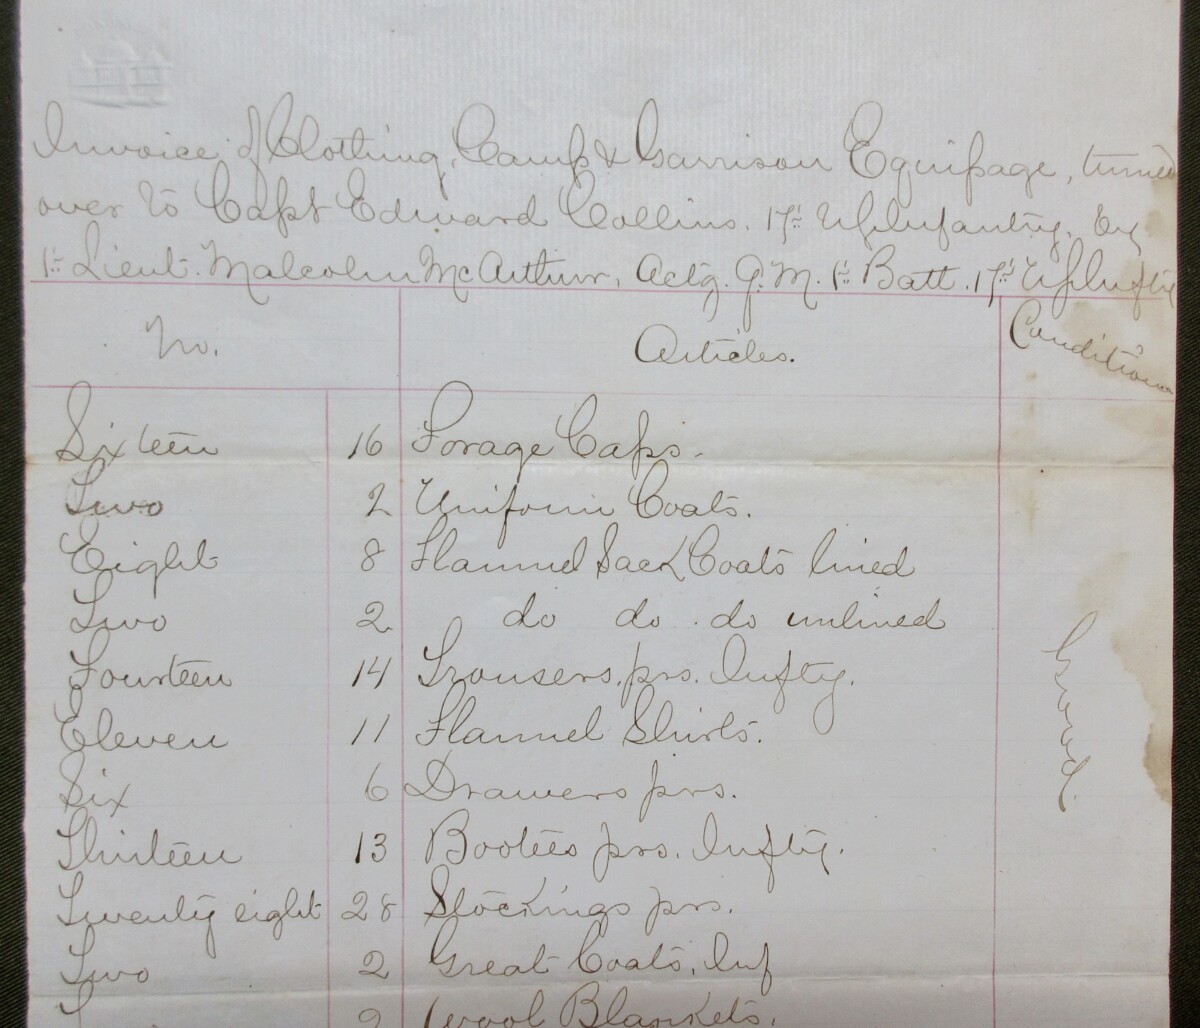 Invoice of Clothing, Camp & Garrison Equipage, turned
over to Capt Edward Collins. 17th US Infantry, by
1st Lieut. Malcolm McArthur, Actg. Q.M. 1st Batt. 17th US Infty
No. Articles. Condition
Sixteen 16 Forage Caps.
Two 2 Uniform Coats.
Eight 8 Flannel Sack Coats lined
Two 2 do do do unlined
Fourteen 14 Trousers, prs. Infty.
Eleven 11 Flannel Shirts.
Six 6 Drawers prs.
Thirteen 13 Bootees prs. Infty.
Twenty eight 28 Stockings prs.
Two 2 Great Coats, Inf
2 Wool Blankets.
Good.